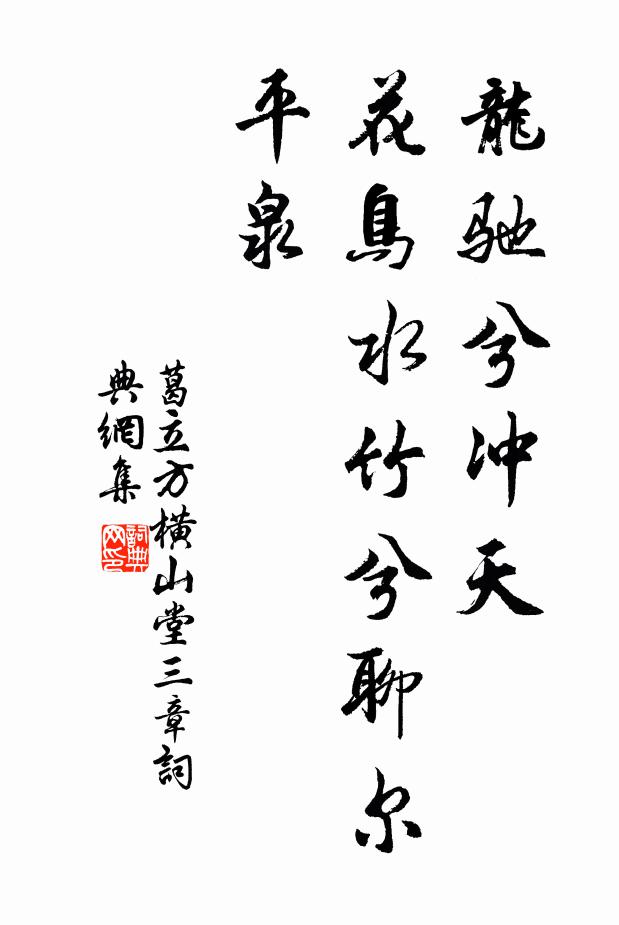 龍馳兮冲天
花鳥水竹兮聊尔
平泉
葛立方橫山堂三章詞
典網集
詞典
网印